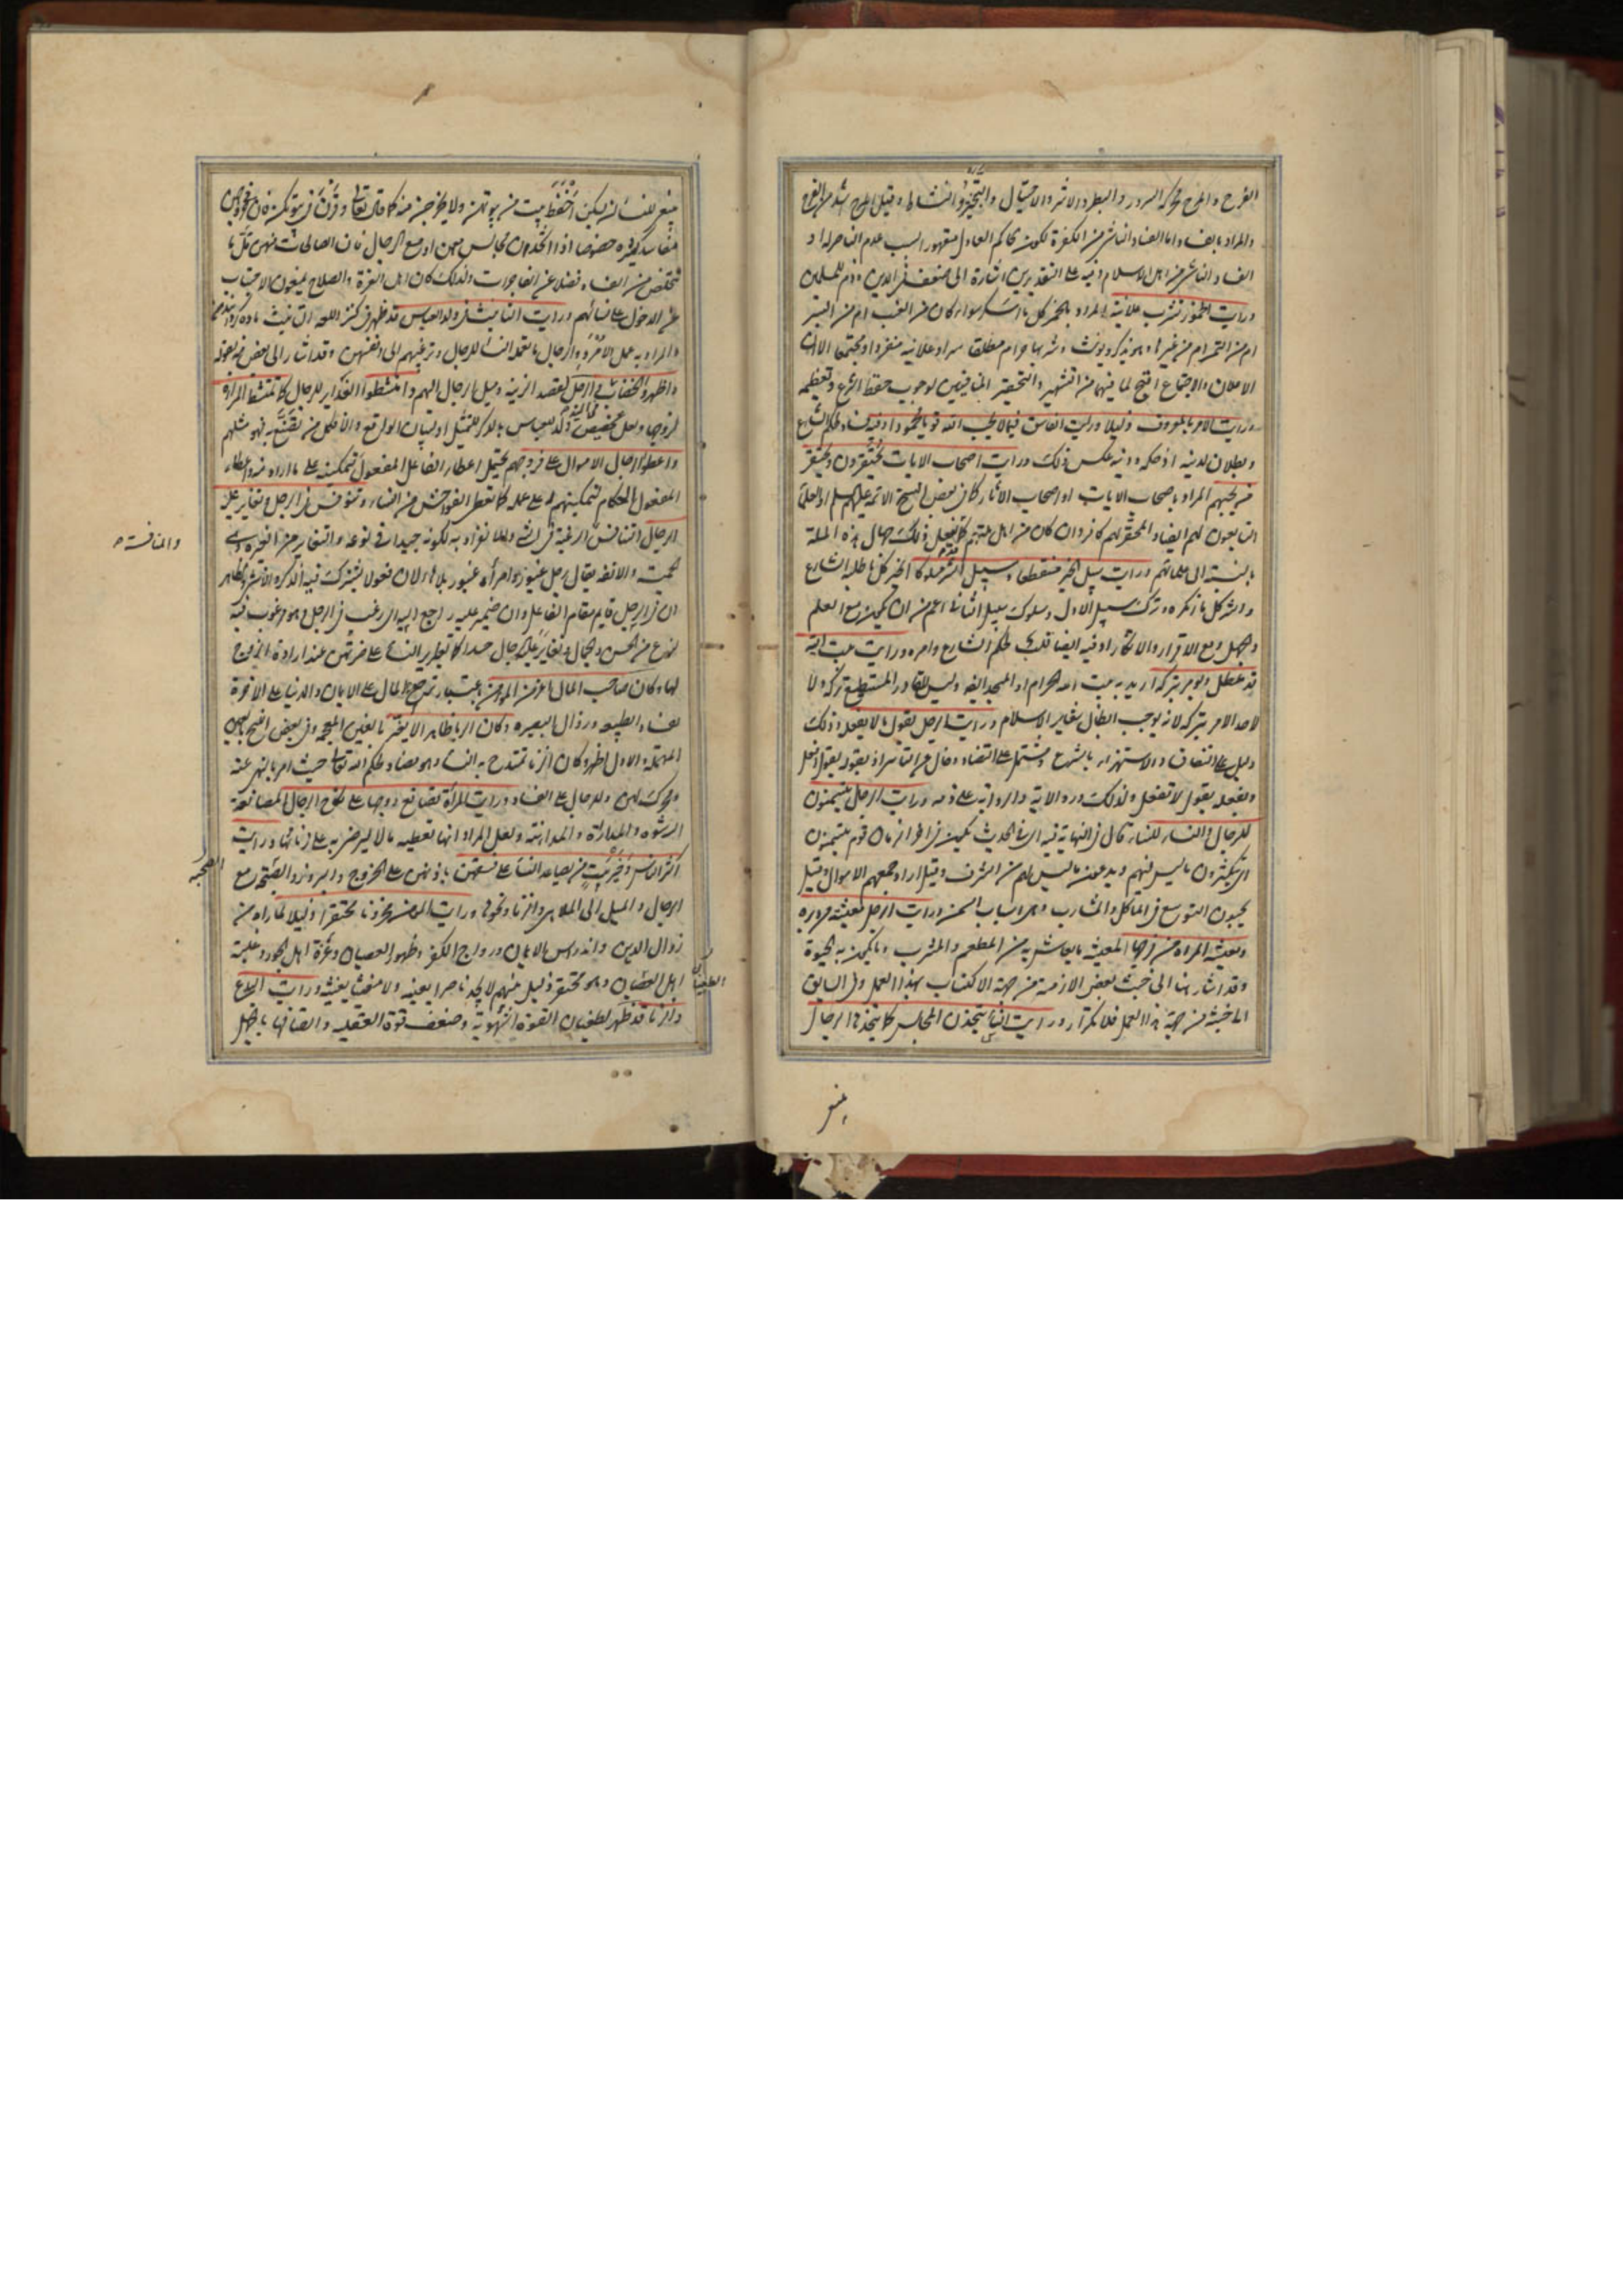 الفرح والمرح محركة السرور والبطر والاشر والاختيال والتبختر والنشاط وقيل المرح اشد من الفرح
والمراد بالفساد اما الفساد الناشي من الكفرة لكون حاكم العادل مقهورا بسبب عدم الناصر له او
الفساد الناشي من اهل الاسلام وفيه على التقديرين اشارة الى ضعف في الدين وذم للمسلمين
ورايت الخمور تشرب علانية المراد بالخمر كل ما اسكر سواء كان من العنب ام من التمر
ام من غيرها وهو يذكر ويؤنث وشربها حرام مطلقا سرا وعلانية منفردا ومجتمعا الا ان
الاعلان والاجتماع اقبح لما فيهما من التشهير والتحقير المنافيين لوجوب حفظ الشرع وتعظيمه
ورايت الامر بالمعروف ذليلا ورايت الفاسق فيما لا يحب الله قويا محمودا وفيه فساد حكم الشارع
وبطلان لدينه اذ حكمه ودينه عكس ذلك ورايت اصحاب الايات يحتقرون ويحتقر
من يحبهم المراد باصحاب الايات او اصحاب الآثار كما في بعض النسخ الائمة عليهم السلم او العلماء
التابعون لهم ايضا والمحقر لهم كافر وان كان من اهل ملتهم كما يفعل ذلك جهال هذه الملة
بالنسبة الى علمائهم ورايت سبيل الخير منقطعا وسبيل الشر مسلوكا الخير كل ما طلبه الشارع
والشر كل ما انكره وترك سبيل الاول وسلوك سبيل الثاني اعم من ان يكون مع العلم
والجهل ومع الاقرار والانكار وفيه ايضا قلب حكم الشارع وامره ورايت بيت الله
قد عطل ويؤمر بتركه اريد به بيت الله الحرام او المسجد ايضا وليس للقادر المستطيع تركه ولا
لاحد الامر بتركه لانه يوجب ابطال شعاير الاسلام ورايت الرجل يقول ما لا يفعله وذلك
دليل على النفاق والاستهزاء بالشرع
ويفعله يقول لا تفعل ولذلك ورد الاية والرواية على ذمه ورايت الرجال يتسمنون
للرجال والنساء للنساء قال في النهاية فيه اي في الحديث يكون في اخر الزمان قوم يتسمنون
اي يتكثرون بما ليس فيهم ويدعون ما ليس لهم من الشرف وقيل اراد جمعهم الاموال وقيل
يحبون التوسع في المآكل والمشارب وهي اسباب السمن ورايت الرجل معيشته من دبره
ومعيشة المراة من فرجها المعيشة ما يعاش به من المطعم والمشرب وما يكون به الحيوة
وقد اشار هنا الى خبث بعض الازمنة من جهة الاكتساب بهذا العمل وفي السابق
الى خبثه من جهة هذا العمل فلا تكرار ورايت النساء يتخذن المجالس كما يتخذها الرجال
ينبغي
ينبغي للنساء ان يسكن اخفظ بيت من بيوتهن ولا يخرجن منه كما قال تعالى وقرن في بيوتكن فان في خروجهن
مفاسد كثيرة خصوصا اذا اتخذن مجالس بينهن او مع الرجال فان الصالحات منهن قل ما
تتخلص من الفساد فضلا عن الفاجرات ولذلك كان اهل العزة والصلاح يمنعون الاجانب
عن الدخول على نسائهم ورايت التانيث في ولد العباس قد ظهر
والمراد به عمل الامرد والرجال ما تعمله النساء للرجال وترغيبهم الى انفسهن وقد اشار الى بعض منه بقوله
واظهروا الخضاب في الرجل لقصد الزينة وميل الرجال اليهم وامتشطوا الغداير للرجال كما تمتشط المراة
لزوجها ولعل تخصيص ولد العباس بالذكر للتمثيل او لبيان الواقع والا فكل من يصنع به فهو مثلهم
واعطوا الرجال الاموال على فروجهم يحتمل اعطاء الفاعل المفعول لتمكينه على ما اراد منه واعطاء
المفعول الحكام لتمكينهم له على عمله كما تعطي الفواحش من النساء وتنوفس في الرجل وتغاير عليه
الرجال التنافس الرغبة في الشيء والانفراد به لكونه جيدا في نوعه والتغاير من الغيرة وهي
والمنافسة
الحمية والانفة يقال رجل غيور وامراة غيور بلا هاء لان فعولا يشترك فيه الذكر والانثى والظاهر
ان في الرجل قايم مقام الفاعل وان ضمير عليه راجع اليه اي رغب في الرجل وهو مرغوب فيه
لنوع من الحسن والجمال وتغاير عليه الرجال حسدا كما تغاير النساء على ضرتهن عند ارادة الزوج
لها وكان صاحب المال اعز من المومن باعتبار ترجيح المال على الايمان والدنيا على الاخرة
لفساد الطبيعة وزوال البصيرة وكان الربا ظاهرا لا يغير بالغين المعجمة وفي بعض النسخ بالعين
المهملة والاول اظهر وكان الزنا تمتدح به النساء وهو مضاد لحكم الله تعالى حيث امر بالنهي عنه
ومحرك لهن وللرجال على الفساد ورايت المراة تصانع زوجها على نكاح الرجال المصانعة
الرشوة والمداراة والمداهنة ولعل المراد انها تعطيه مالا ليرضى به على زنائها ورايت
اكثر الناس وخير بيت من يساعد النساء على فسقهن باذنهن على الخروج والبروز والصحبة مع
الصحبة
الرجال والميل الى الملاهي والزنا ونحوها ورايت المؤمن محزونا محتقرا ذليلا لما راه من
زوال الدين واندراس الايمان ورواج الكفر وظهور العصيان وعزة اهل الجور وغلبة
اهل العصيان وهو محتقر ذليل بينهم لا يجد ناصرا يعينه ولا مغيثا يغيثه ورايت البدع
الطغيان
والزنا قد ظهر لطغيان القوة الشهوية وضعف قوة العقلية واتصافها بالجهل